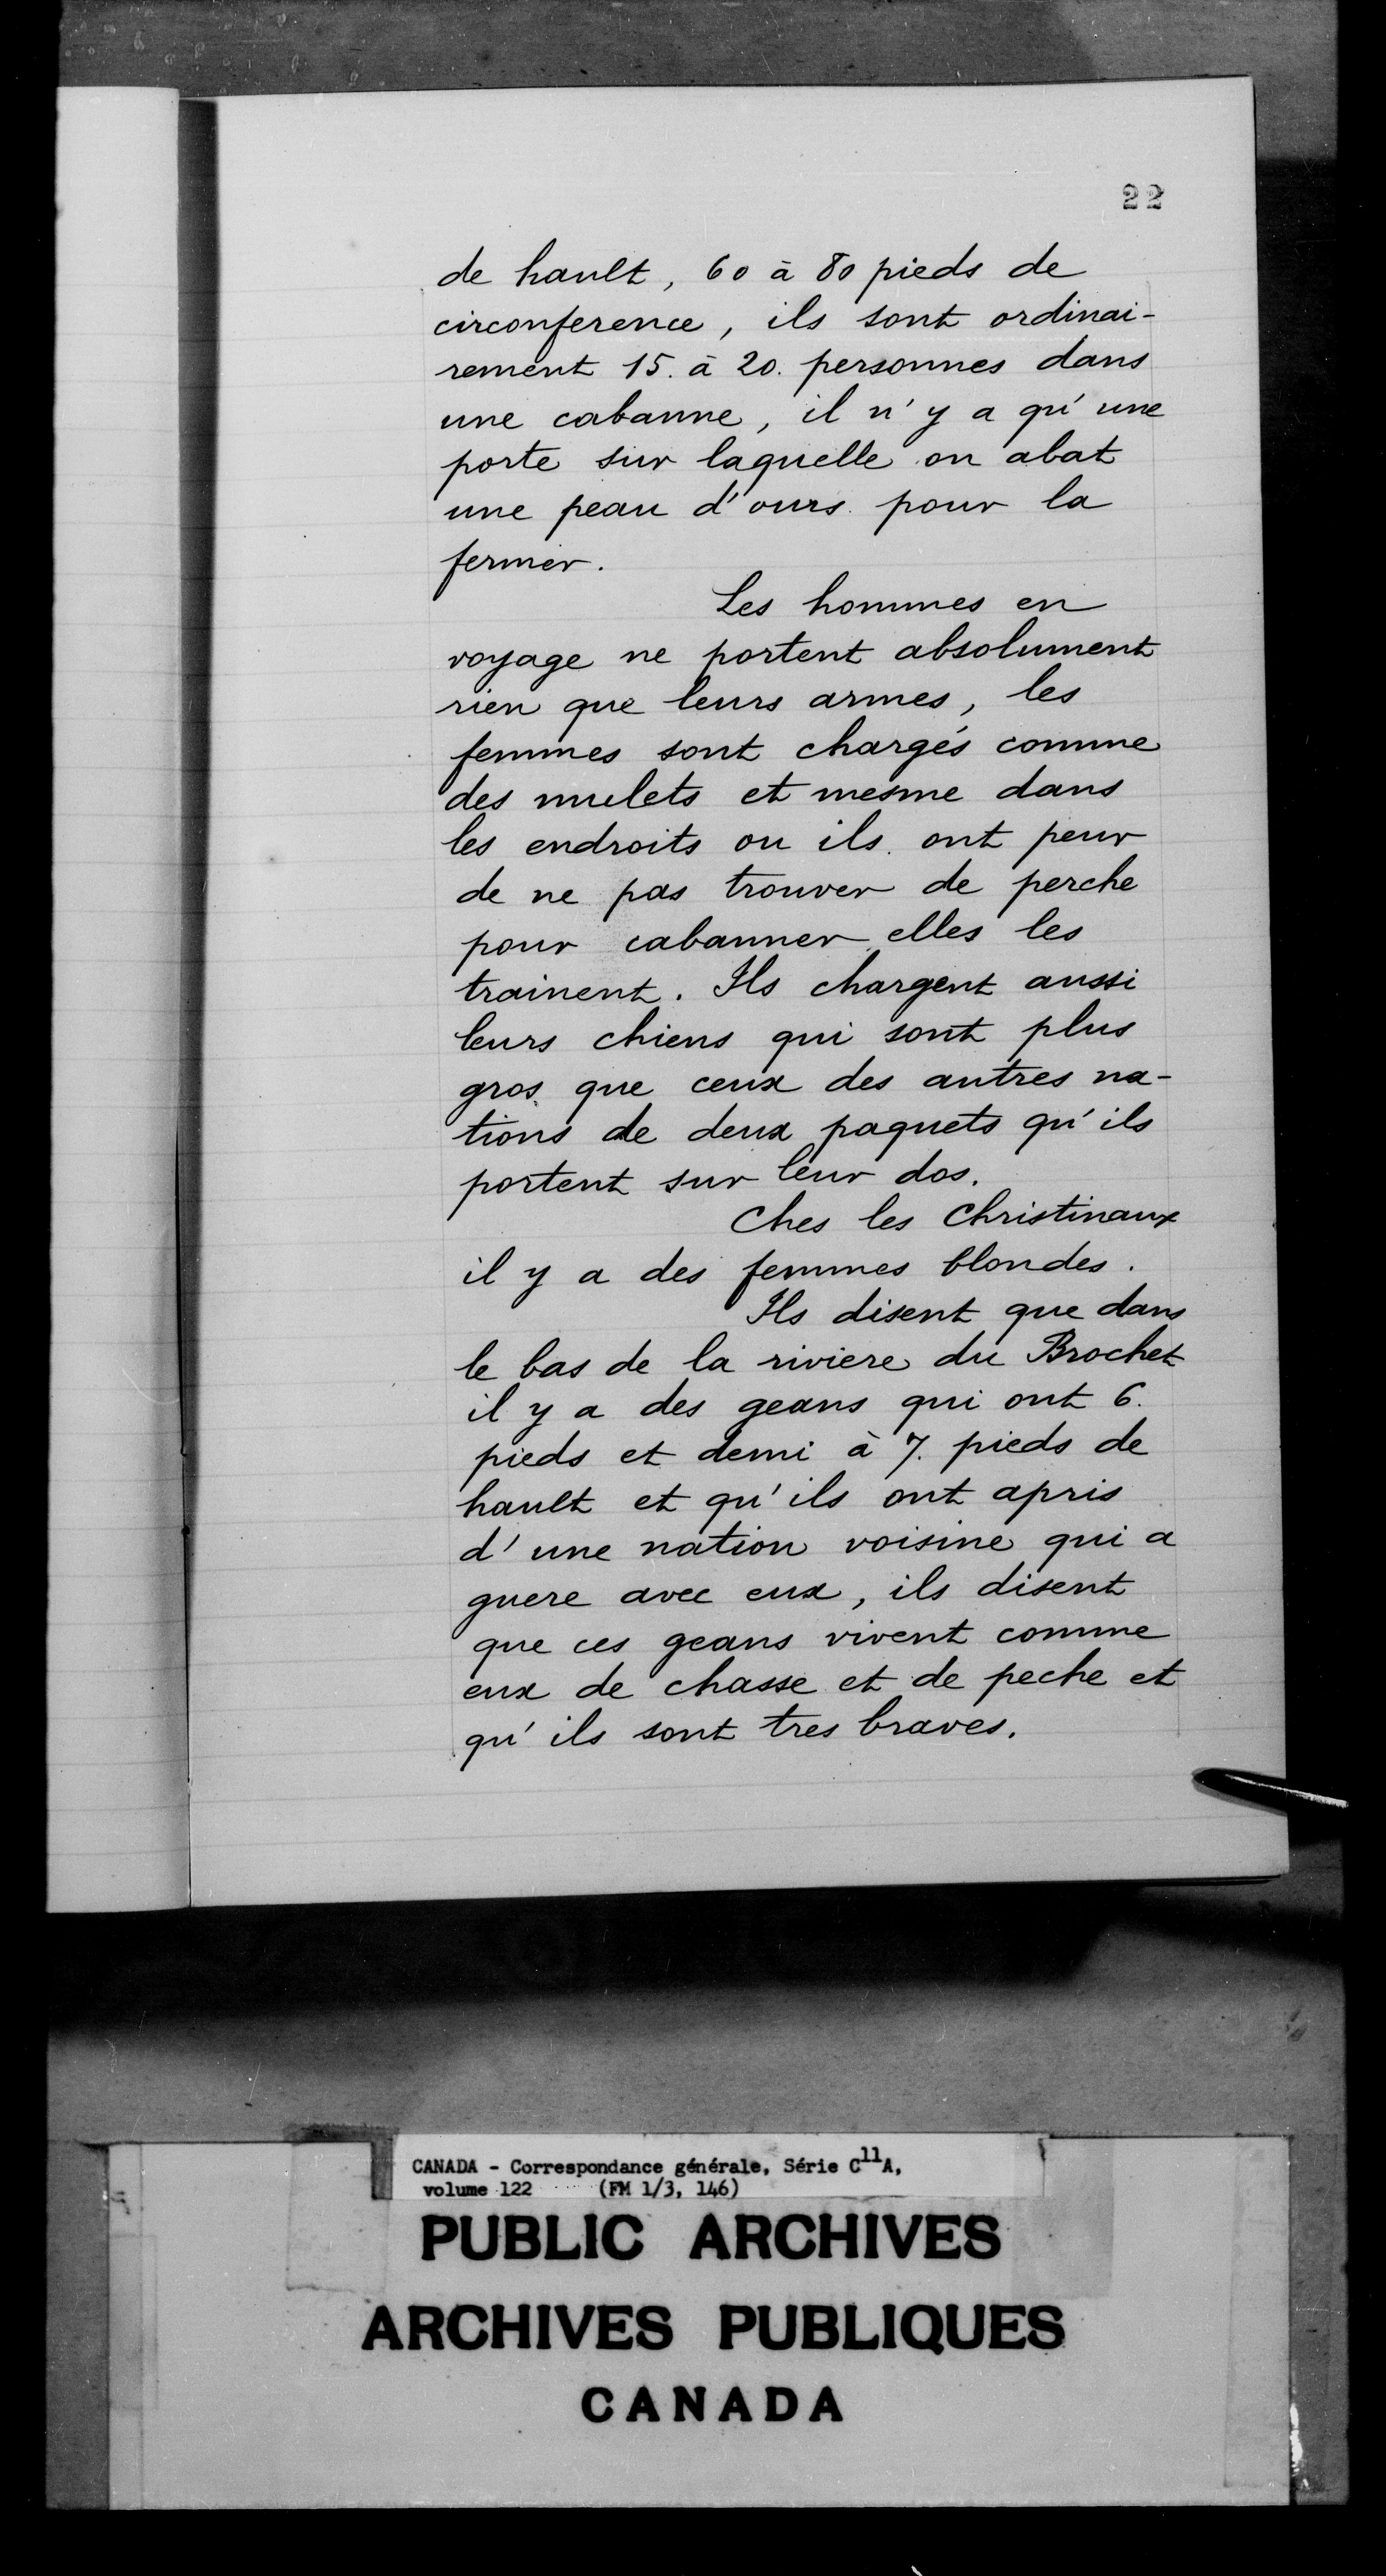 22
de hault, 60 à 80 pieds de
circonference, ils sont ordinai-
rement 15. à 20. personnes dans
une cabanne, il n'y a qu'une
porte sur laquelle on abat
une peau d'ours pour la
fermer.
Les hommes en
voyage ne portent absolument
rien que leurs armes, les
femmes sont chargés comme
des mulets et mesme dans
les endroits ou ils ont peur
de ne pas trouver de perche
pour cabanner elles les
trainent. Ils chargent aussi
leurs chiens qui sont plus
gros que ceux des autres na-
tions de deux paquets qu'ils
portent sur leur dos.
Ches les Christinaux
il y a des femmes blondes.
Ils disent que dans
le bas de la riviere du Brochet
il y a des geans qui ont 6.
pieds et demi à 7. pieds de
hault et qu'ils ont apris
d'une nation voisine qui a
guere avec eux, ils disent
que ces geans vivent comme
eux de chasse et de peche et
qu'ils sont tres braves.
CANADA - Correspondance générale, Série C11A,
volume 122 (FM 1/3, 146)
PUBLIC ARCHIVES
ARCHIVES PUBLIQUES
CANADA